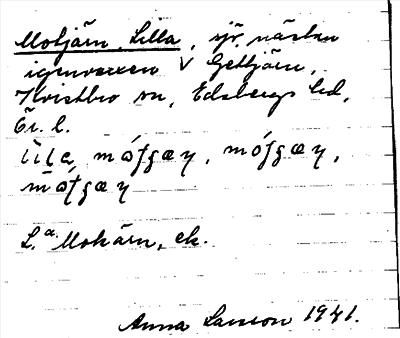 Motjärn, Lilla, sjö, nästan
igenvuxen V Gettjärn,
Kvistbro sn, Edsbergs hd,
Ör. l.
lila mótjæɳ, mójæɳ,
mótjæɳ
L:a Mokärn, ek.
Anna Larsson 1941.